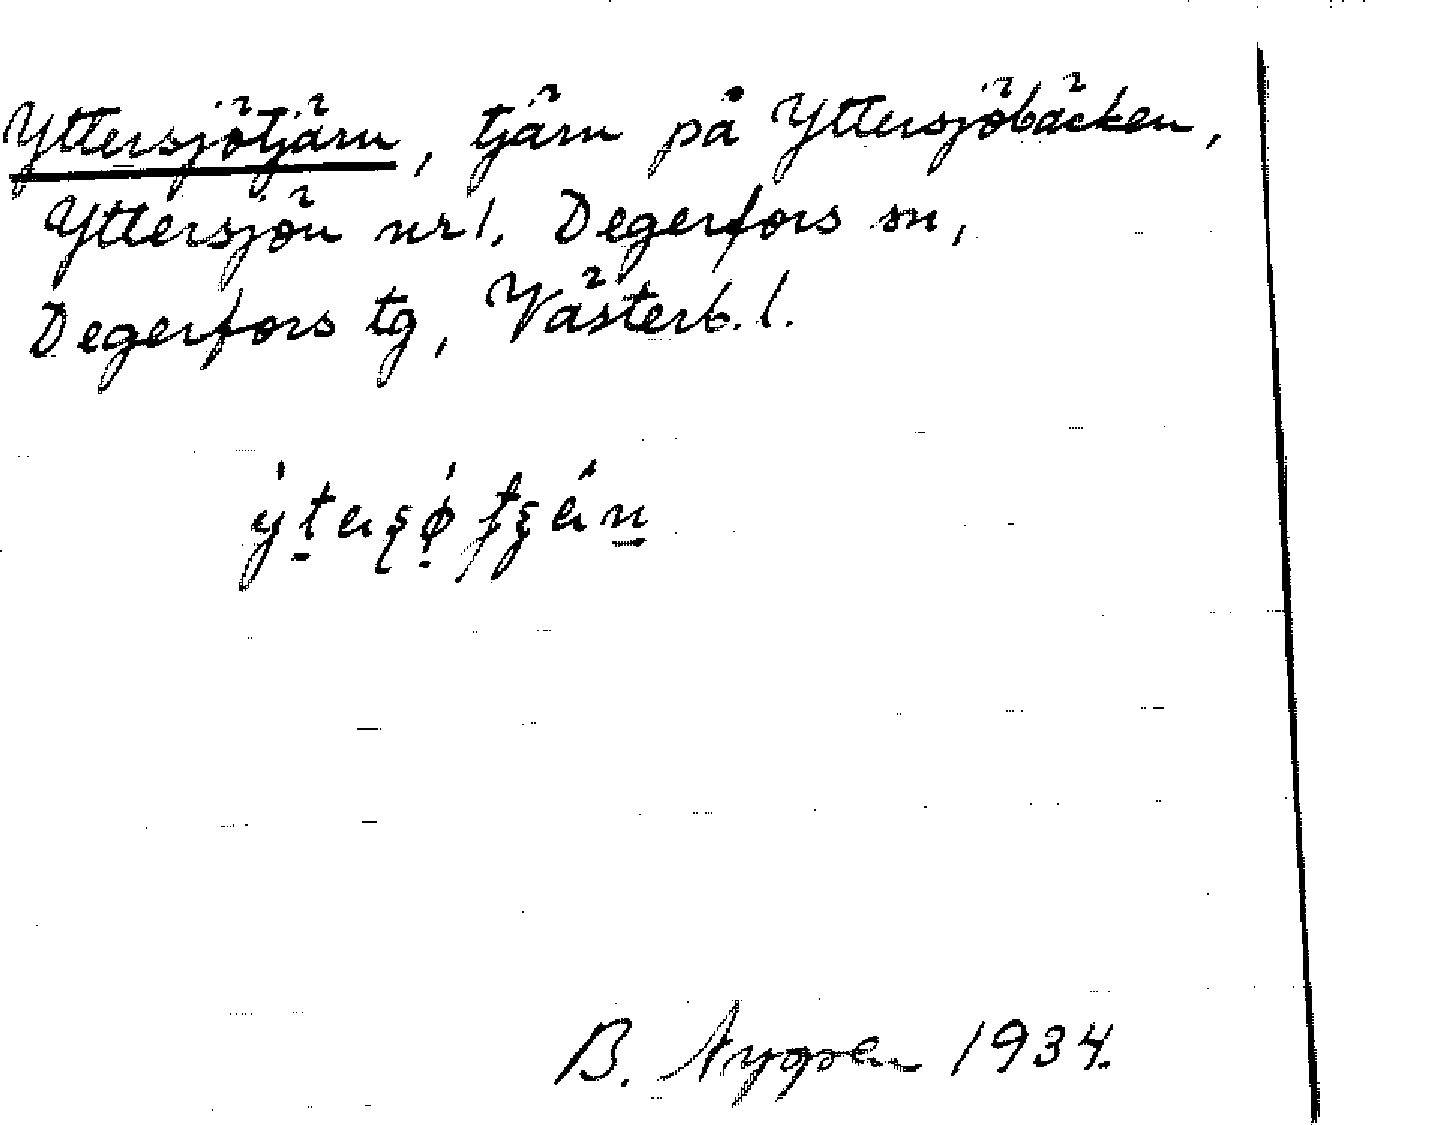 Yttersjötjärn, tjärn på Yttersjöbäcken,
Yttersjön nr 1. Degerfors sn,
Degerfors tg, Västerb. l.
B. Nygren 1934.